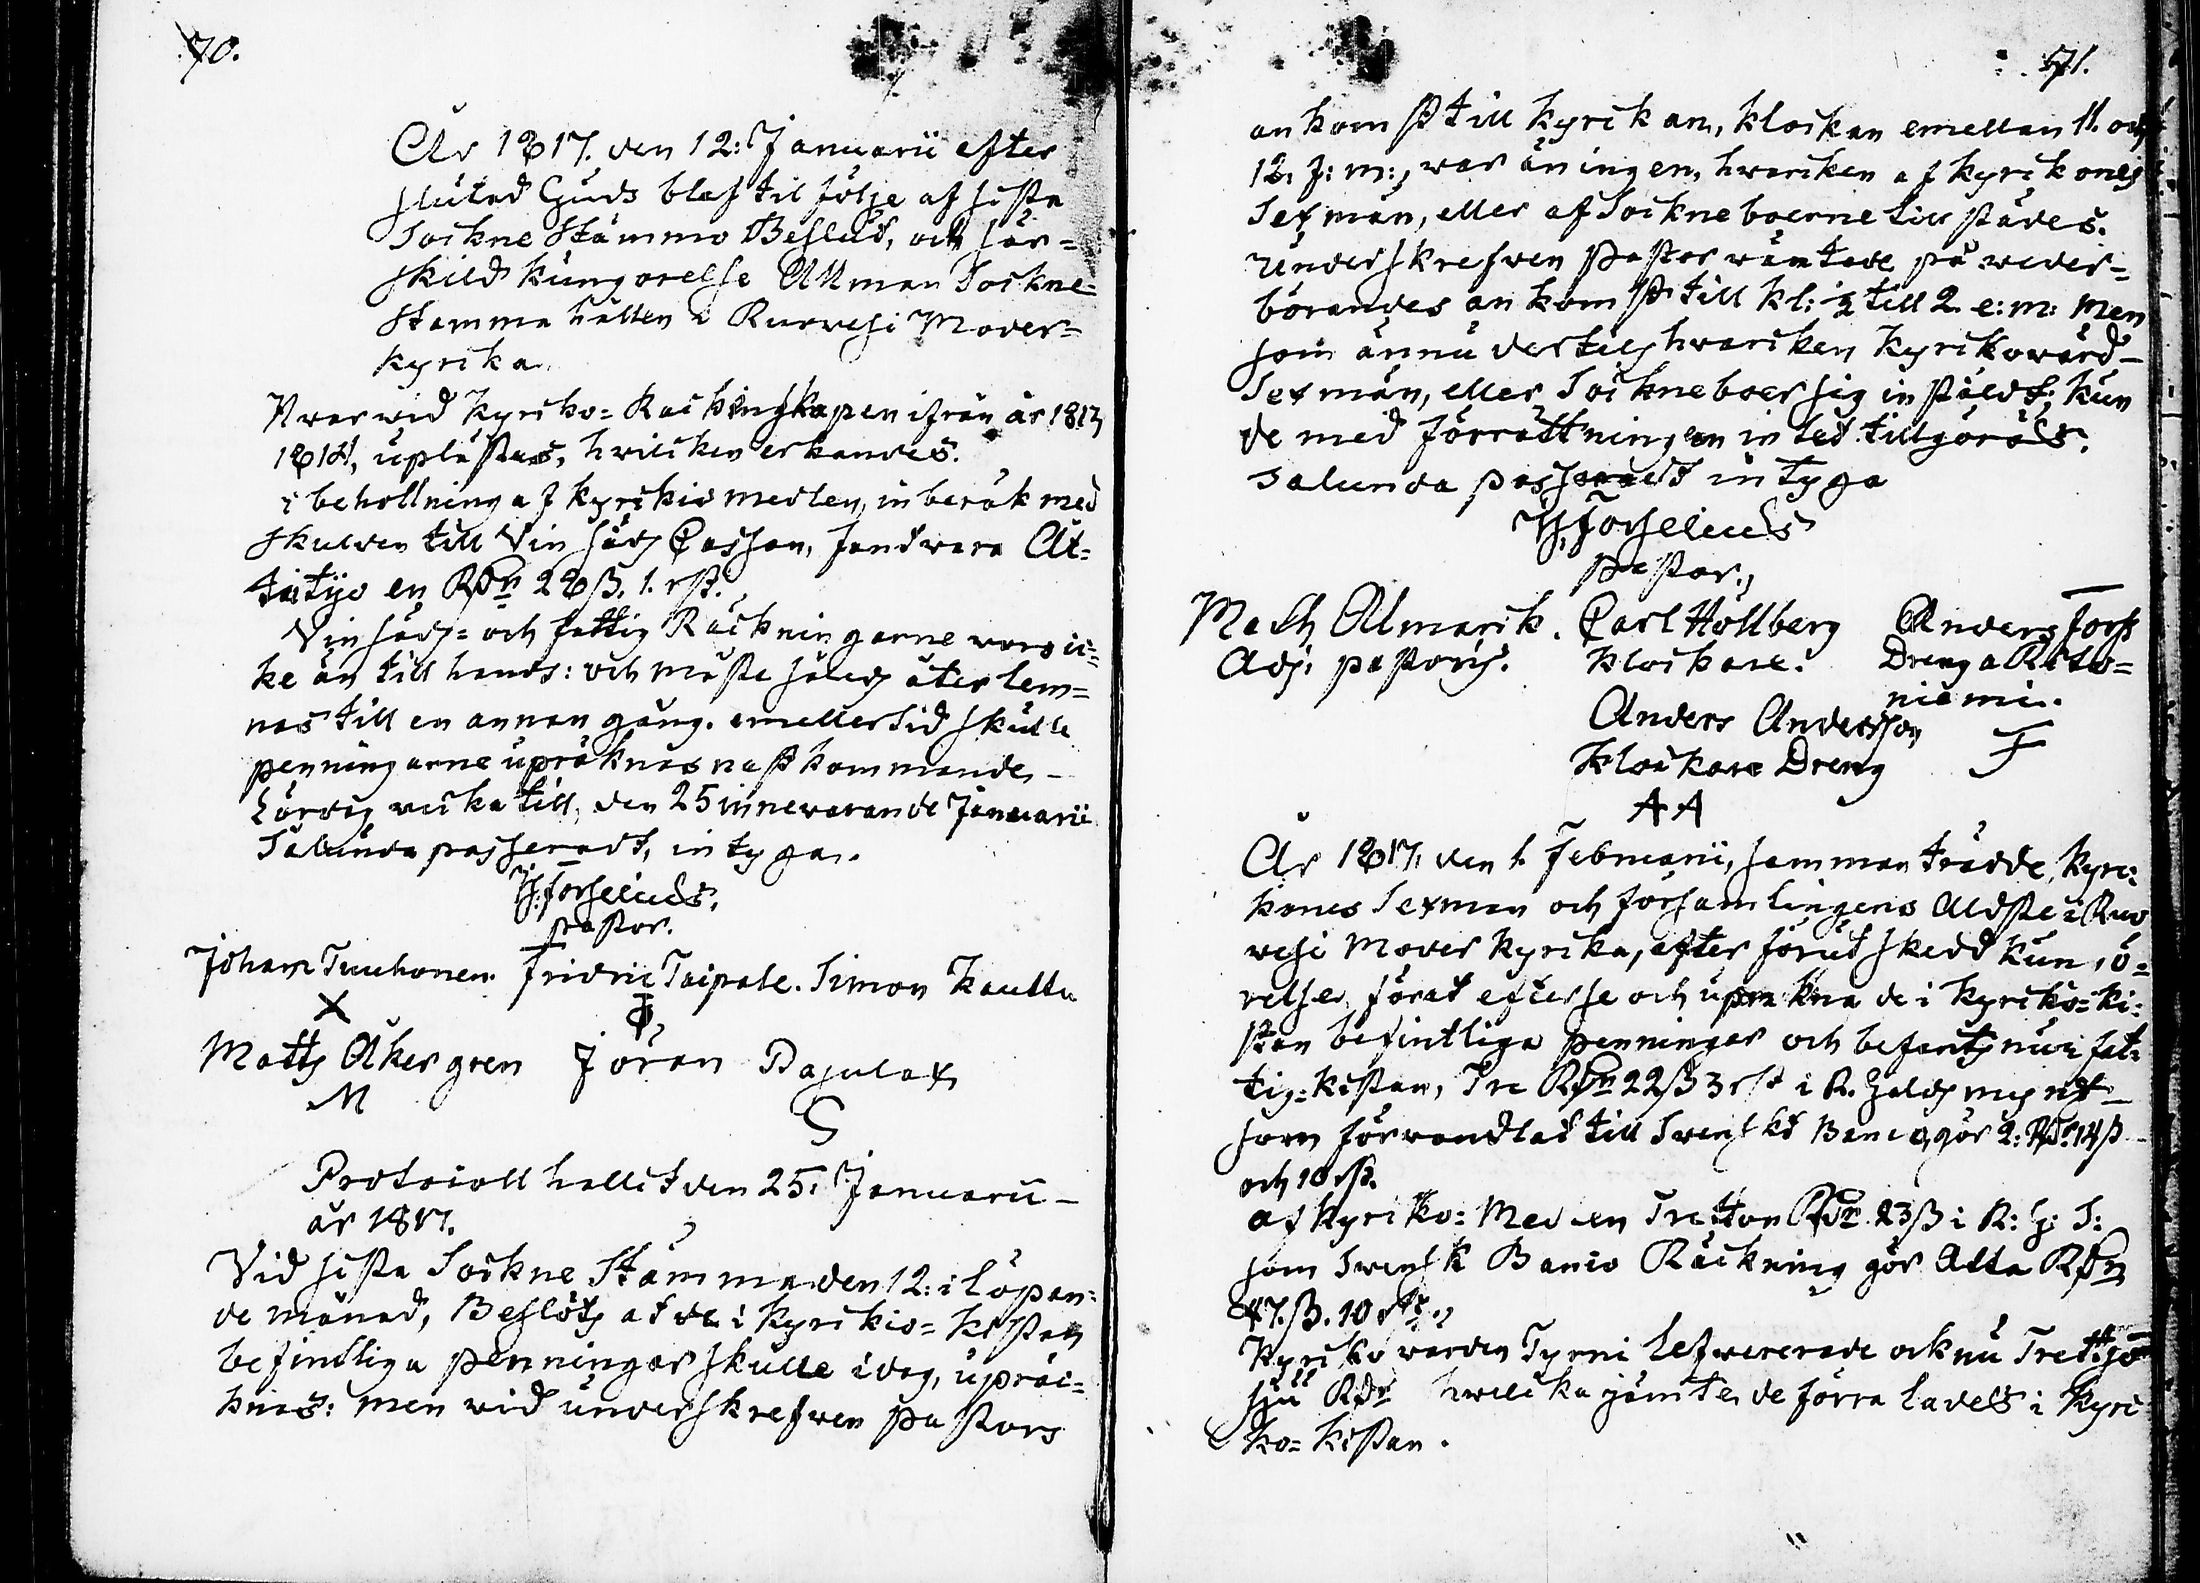 70.
År 1817. den 12: Januarii efter
slutad Guds        til följe af sista
Sockne Stämmo Beslut, och sär=
skild kungörelse Allman Sockne=
Stamma hållen i Ruovesi Moder=
kyrika.
Hwarwid Kyriko= Räckinskapen ifrån år 1813
1814, uplästes, hwilcken erkandes.
i behollning af kyrickio medlen, inberäk med
skulden till Vin säds Cassan, fandwara At=
tatijo en Rdr 28 ß. 1. rst.
Vinsäds= och fattig Räckningarne woro ic=
ke än till hands: och måste således återlem=
nas till en annan gång. emellertid skulle
penningarne upräknas nast kommande
Lördag wicka till, den 25 innewarande Januarii
Sålunda passeradt, intyga.
H. Forselius,
pastor.
Johan Tuuhonen Fridric Taipale. Simon Kauttu
X
Matts Åkergren Jöran Pajulax
M G
Protocoll hållit den 25. Januarii
år 1817.
Vid sista Sockne Stämma den 12: i löpan=
de månad, Beslöts at de i Kyrickio= kistan
befintliga penningar skulle idag, upräc=
knas: men wid underskrefwen pastors
71.
ankomst till kyrickan, klockan emellan 11. och
12. f: m:, war än ingen, hwarcken af kyrickones
Sexmän, eller af Sockneboerne tillstädes.
Underskrefwen pastor wäntade på weder=
börandes ankomst till kl: ½ till 2. e: m: Men
som ännu dertils hwarcken Kyrickowärd
Sexmän, eller Sockneboer sig instäldt; kun
de med förrättningen intet tillgöras.
Salunda passeradt intyga
H. Forselius
pastor.
Math Almarck. Carl Hollberg Anders Forss
Adj. pastoris. Klockare. Dreng a Ritto=
niemi.
Anders Andersson F
Klockare Dreng
A A
År 1817. den 1. Februarii, samman trädde, Kyric=
kones Sexman och Församlingens Aldste i Ruo
wesi Moder kyricka, efter förut skedd Kungö=
relse, förat efterse och upräkna de i Kyricko= ki=
stan befintliga penningar och befants nu i fat=
tig= kistan, Tre Rdr 22 ß 3 rst i R. Gälds mynt
som förwandlat till Swenskt Banco gör 2: Rdr. 14 ß
och 10 rst.
af Kyricko= Medlen Tretton Rdr. 23 ß i R: G: S:
som Swensk Banco Räckning gör Atta Rdr
47. ß. 10 rst.
Kyricko wärden Tyrni lefwererade ock nu Trettjo
sju Rdr hwilcka jämte de förra lades i Kyri
ko= kistan.